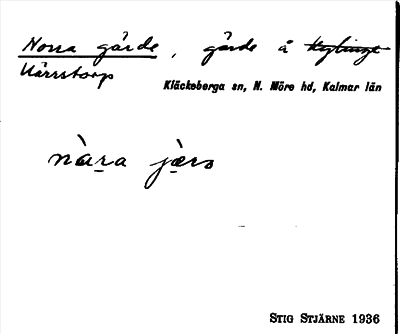 Norra gärde, gärde å
Kärrstorp
Kläckeberga sn, N. Möre hd, Kalmar län
nàra jæ̀ro
STIG STJÄRNE 1936